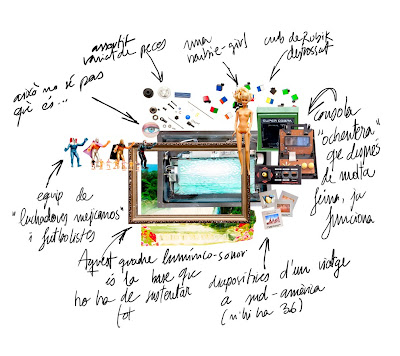 això no sé pas
què és...
assortit
variat de peces
una
barbie-girl
cub de Rubik
destrossat
SUPER COBRA
consola
"ochentera"
que després
de molta
feina, ja
funciona
equip de
"luchadores mejicanos"
i futbolistes
Aquest quadre lumínico-sonor
és la base que
ho ha de sustentar
tot
diapositives d'un viatge
a sud-amèrica
(n'hi ha 36)